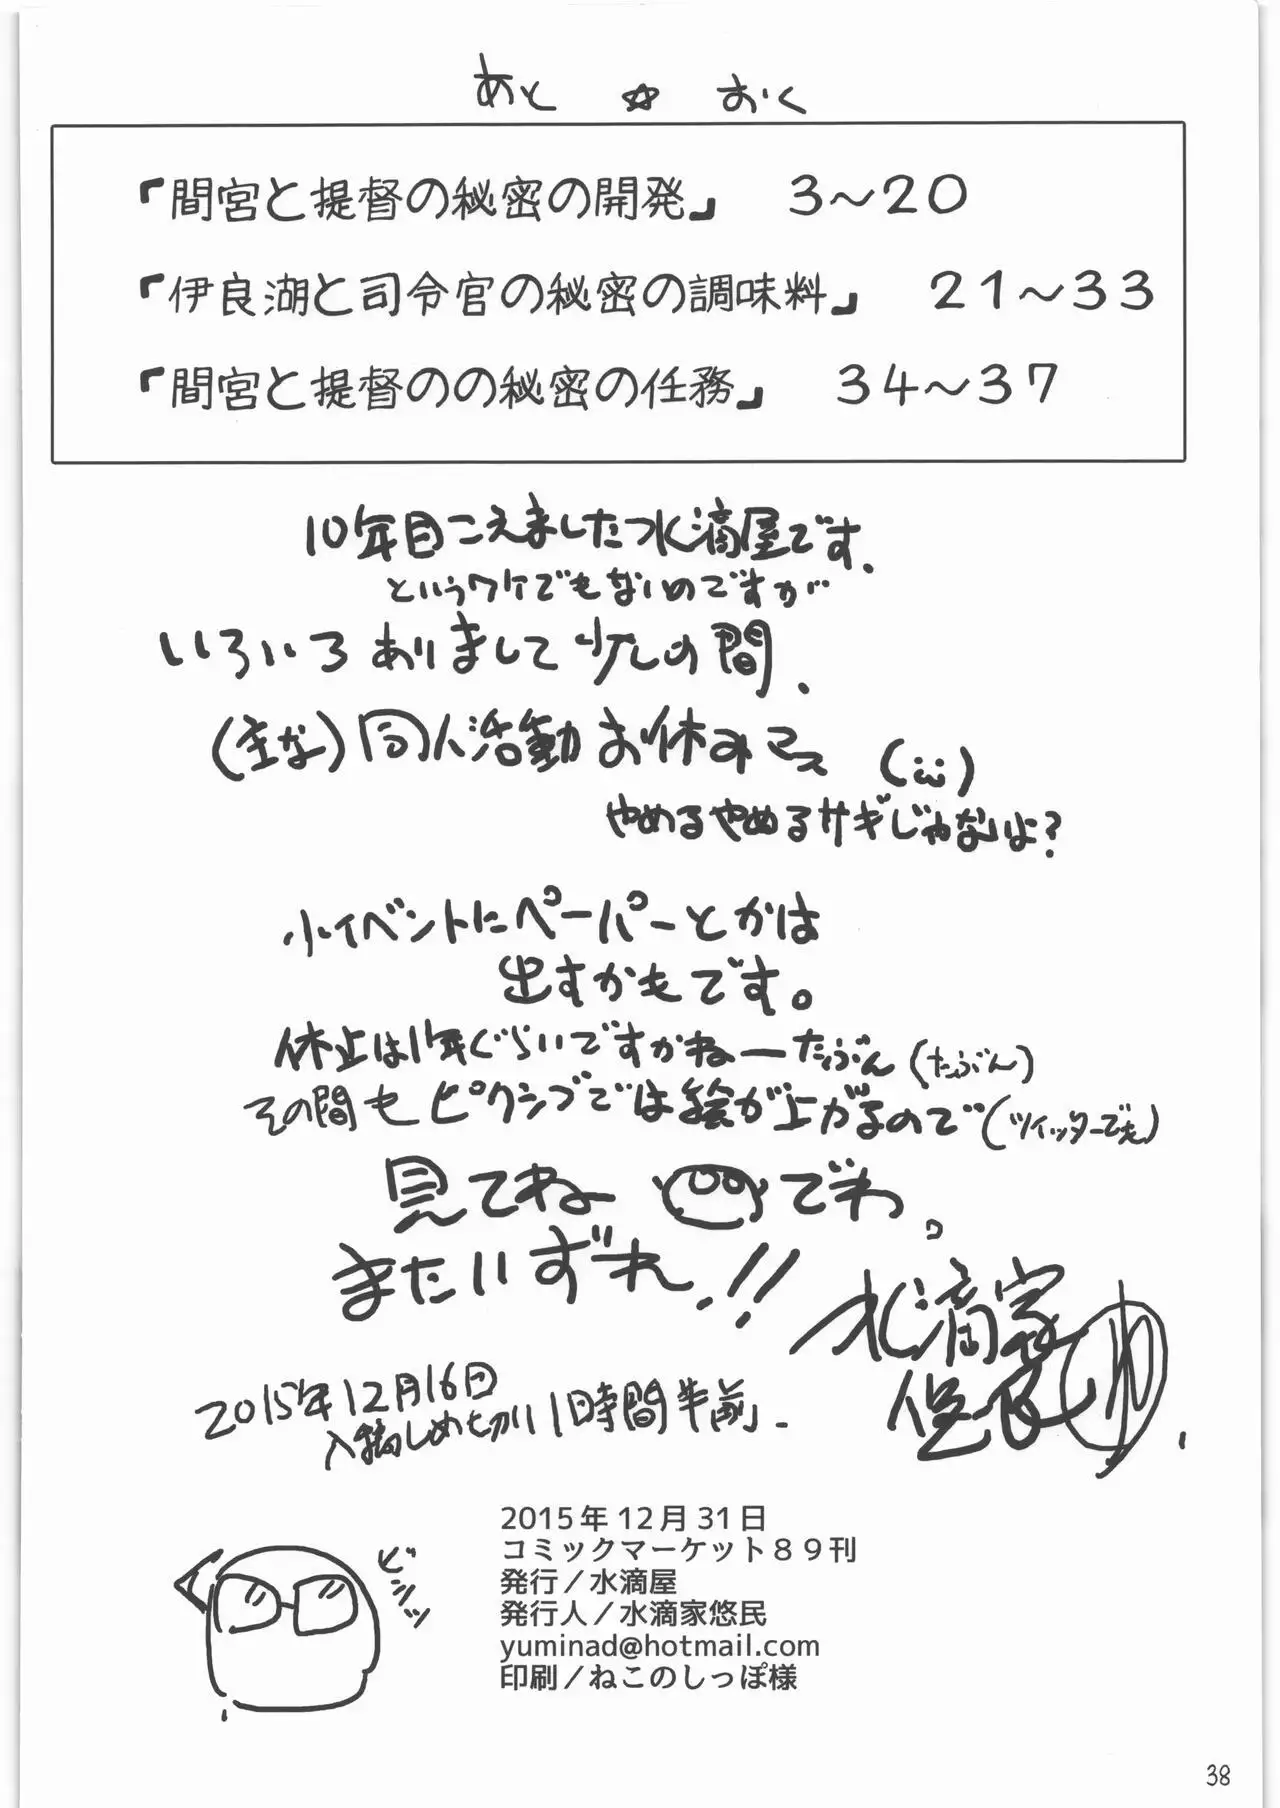 あと☆おく
「間宮と提督の秘密の開発」 3～20
「伊良湖と司令官の秘密の調味料」 21～33
「間宮と提督のの秘密の任務」 34～37
10年目こえました水滴屋です.
というワケでもないのですが
いろいろありまして少しの間.
(主な)同人活動お休みマス (;ω)
やめるやめるサギじゃないよ?
小イベントにペーパーとかは
出すかもです。
休止は1年ぐらいですかねーたぶん(たぶん)
その間もピクシブでは絵が上がるので(ツイッターでも)
見てねー でわ。
またいずれ.!!
水滴家
悠民
2015年12月16日
入稿しめ切り1時間半前.
ビシッ
2015年12月31日
コミックマーケット89刊
発行／水滴屋
発行人／水滴家悠民
yuminad@hotmail.com
印刷／ねこのしっぽ様
38